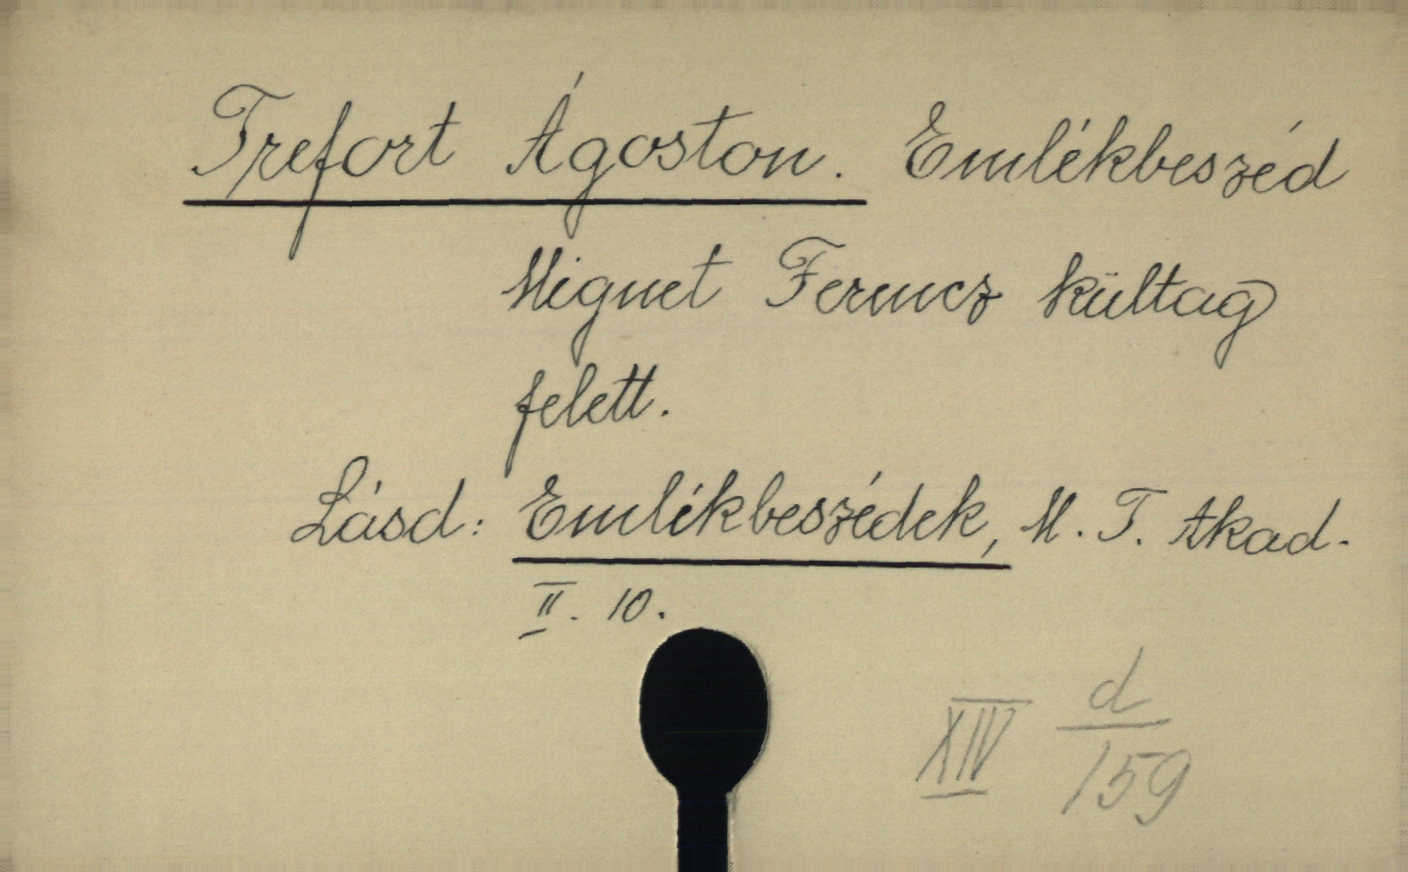 Trefort Ágoston. Emlékbeszéd
Mignet Ferencz kültag
felett.
Lásd: Emlékbeszédek, M. T. Akad.
II. 10.
XIV d/159